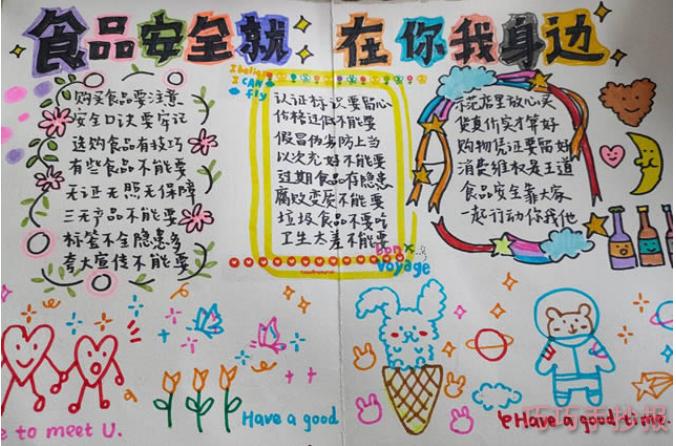 食品安全就在你我身边
购买食品要注意
安全口诀要牢记
选购食品有技巧
有些食品不能要
无证无照无保障
三无产品不能要
标签不全隐患多
夸大宣传不能要
I believe
I CAN
fly
认证标识要留心
价格过低不能要
假冒伪劣防上当
以次充好不能要
过期食品存隐患
腐败变质不能要
垃圾食品不要吃
卫生太差不能要
Bon
Voyage
示范店里放心买
货真价实才算好
购物凭证要留好
消费维权是王道
食品安全靠大家
一起行动你我他
e to meet U.
Have a good
Have a good time.
巧巧手抄报